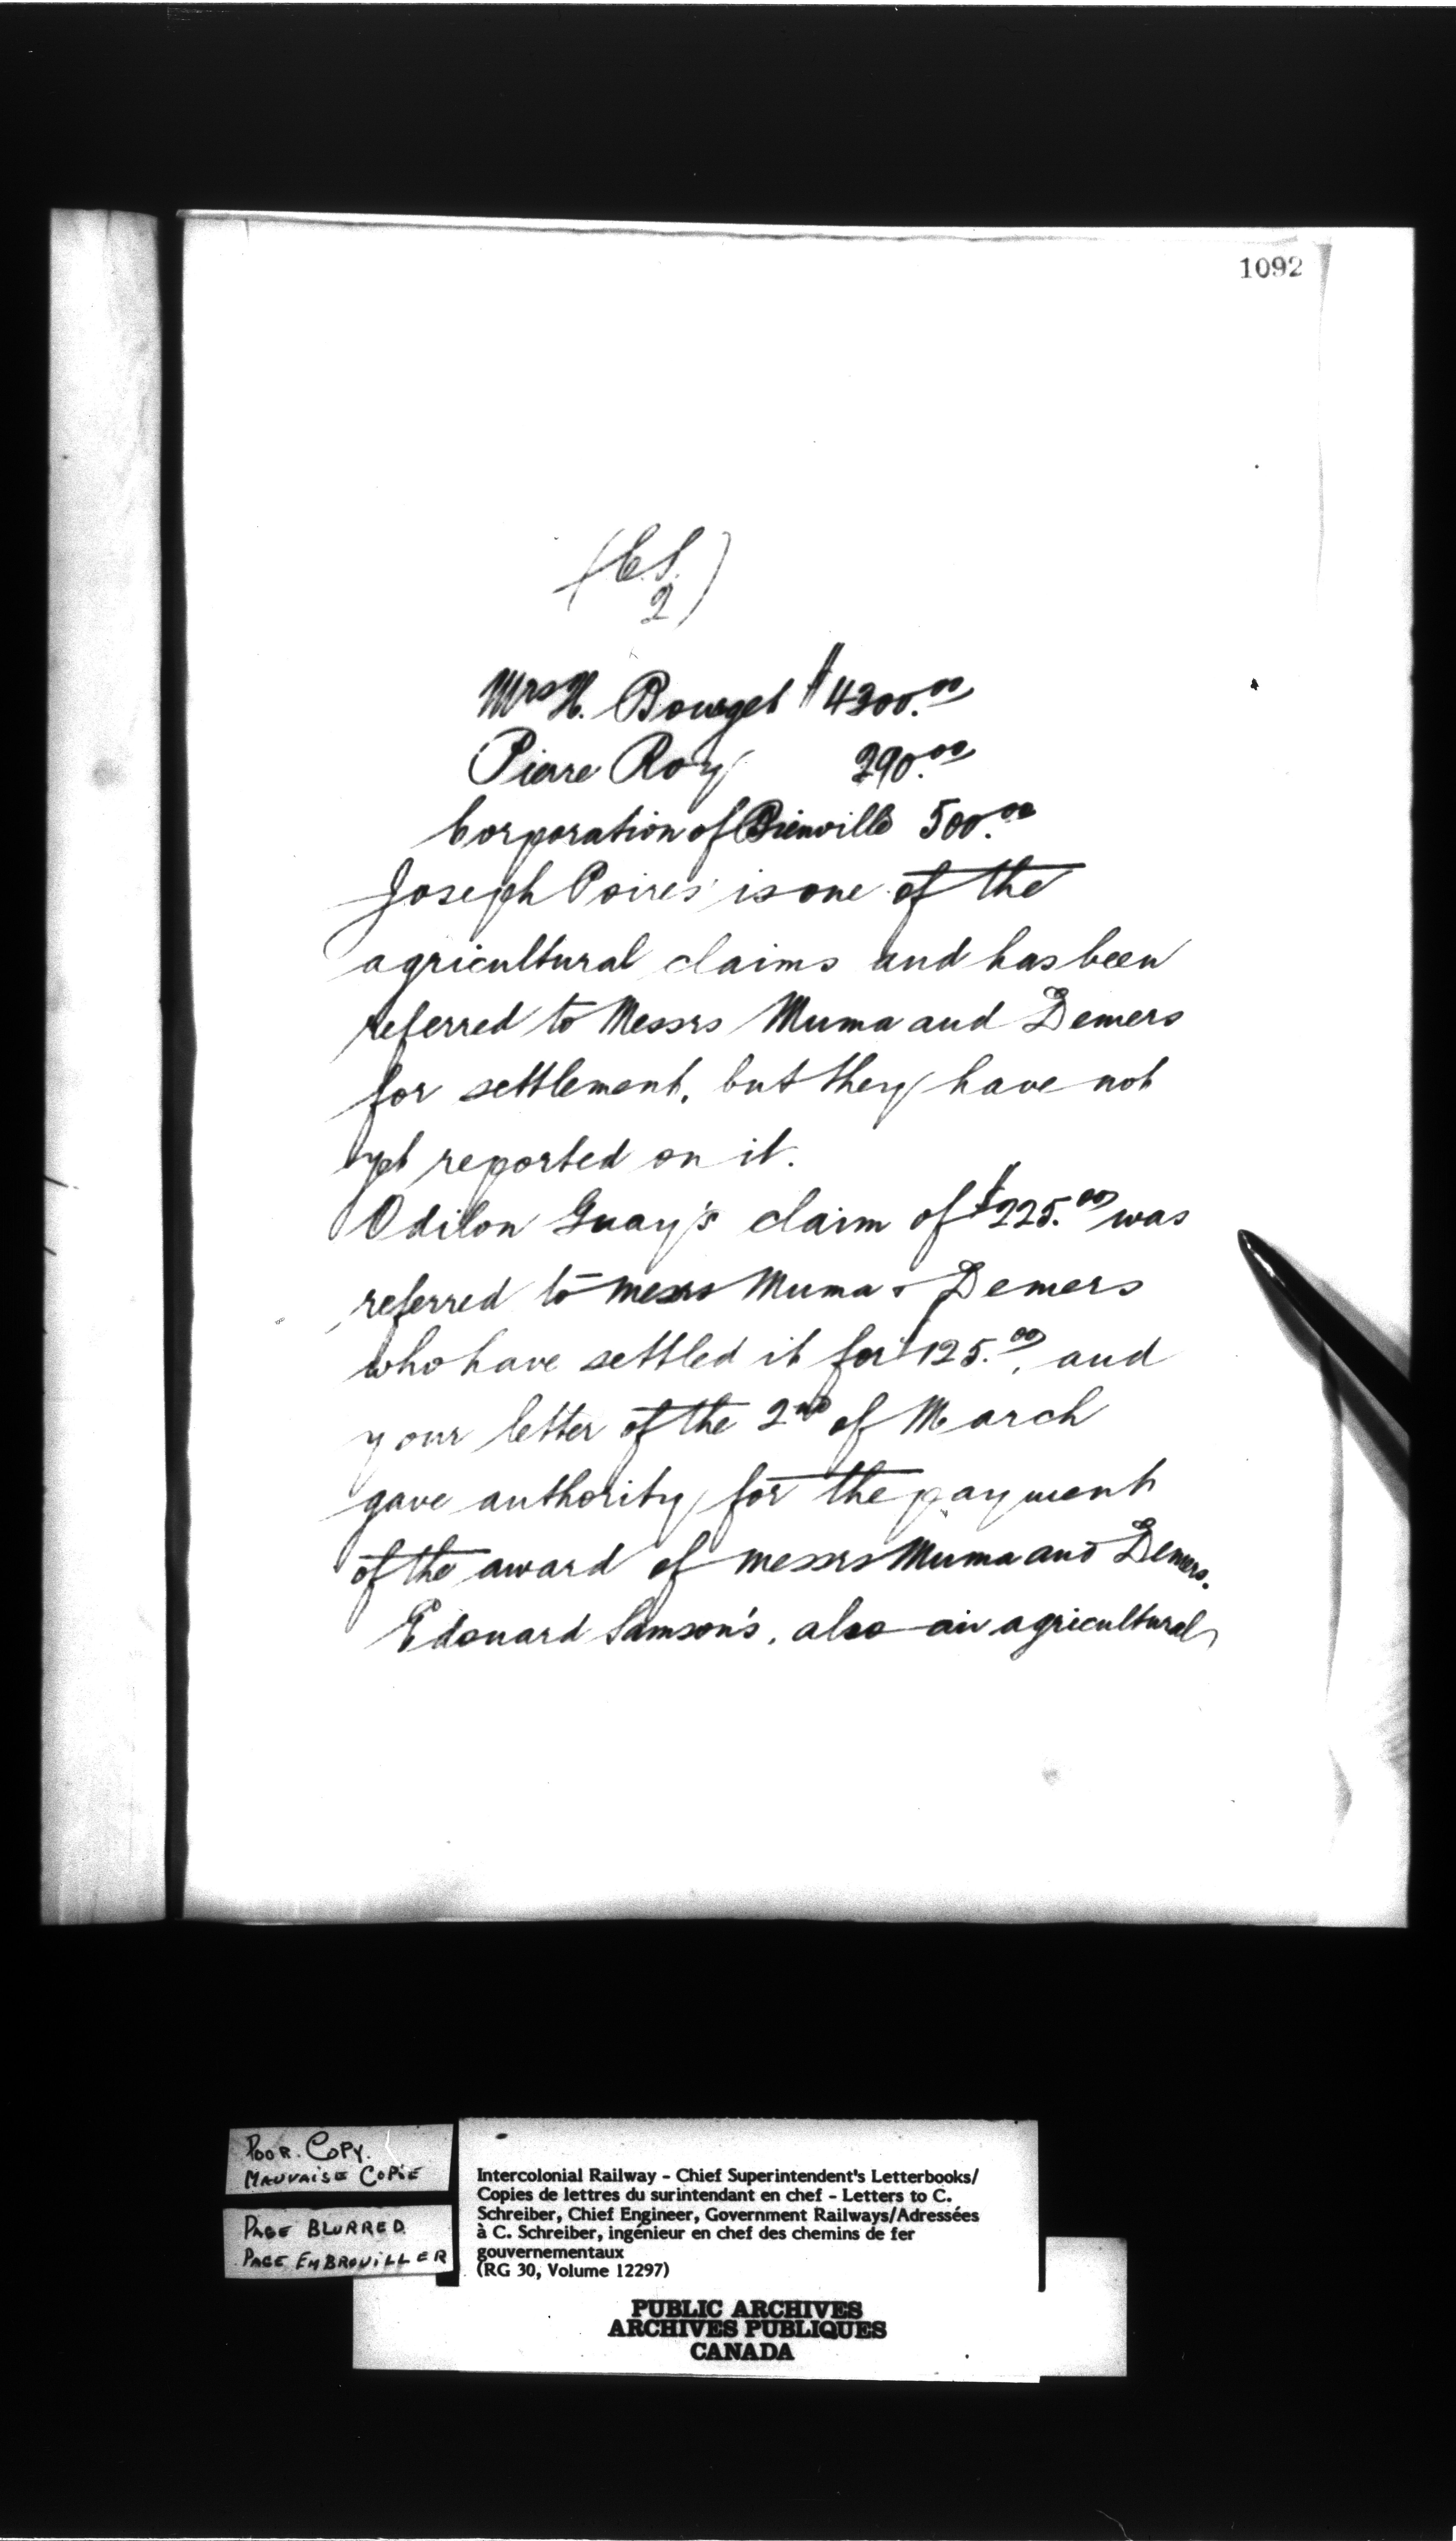 1092
(C.S.
2)
Mrs H. Bourget $4300.00
Pierre Roy 290.00
Corporation of Bienville 500.00
Joseph Poires' is one of the
agricultural claims and has been
referred to Messrs Muma and Demers
for settlement, but they have not
yet reported on it.
Odilon Guay's claim of $225.00 was
referred to Messrs Muma & Demers
who have settled it for $125.00, and
your letter of the 2nd of March
gave authority for the payment
of the award of Messrs Muma and Demers.
Edouard Samson's, also an agricultural
POOR. COPY.
MAUVAISE COPIE
PAGE BLURRED
PAGE EMBROUILLER
Intercolonial Railway - Chief Superintendent's Letterbooks/
Copies de lettres du surintendant en chef - Letters to C.
Schreiber, Chief Engineer, Government Railways/Adressées
à C. Schreiber, ingénieur en chef des chemins de fer
gouvernementaux
(RG 30, Volume 12297)
PUBLIC ARCHIVES
ARCHIVES PUBLIQUES
CANADA